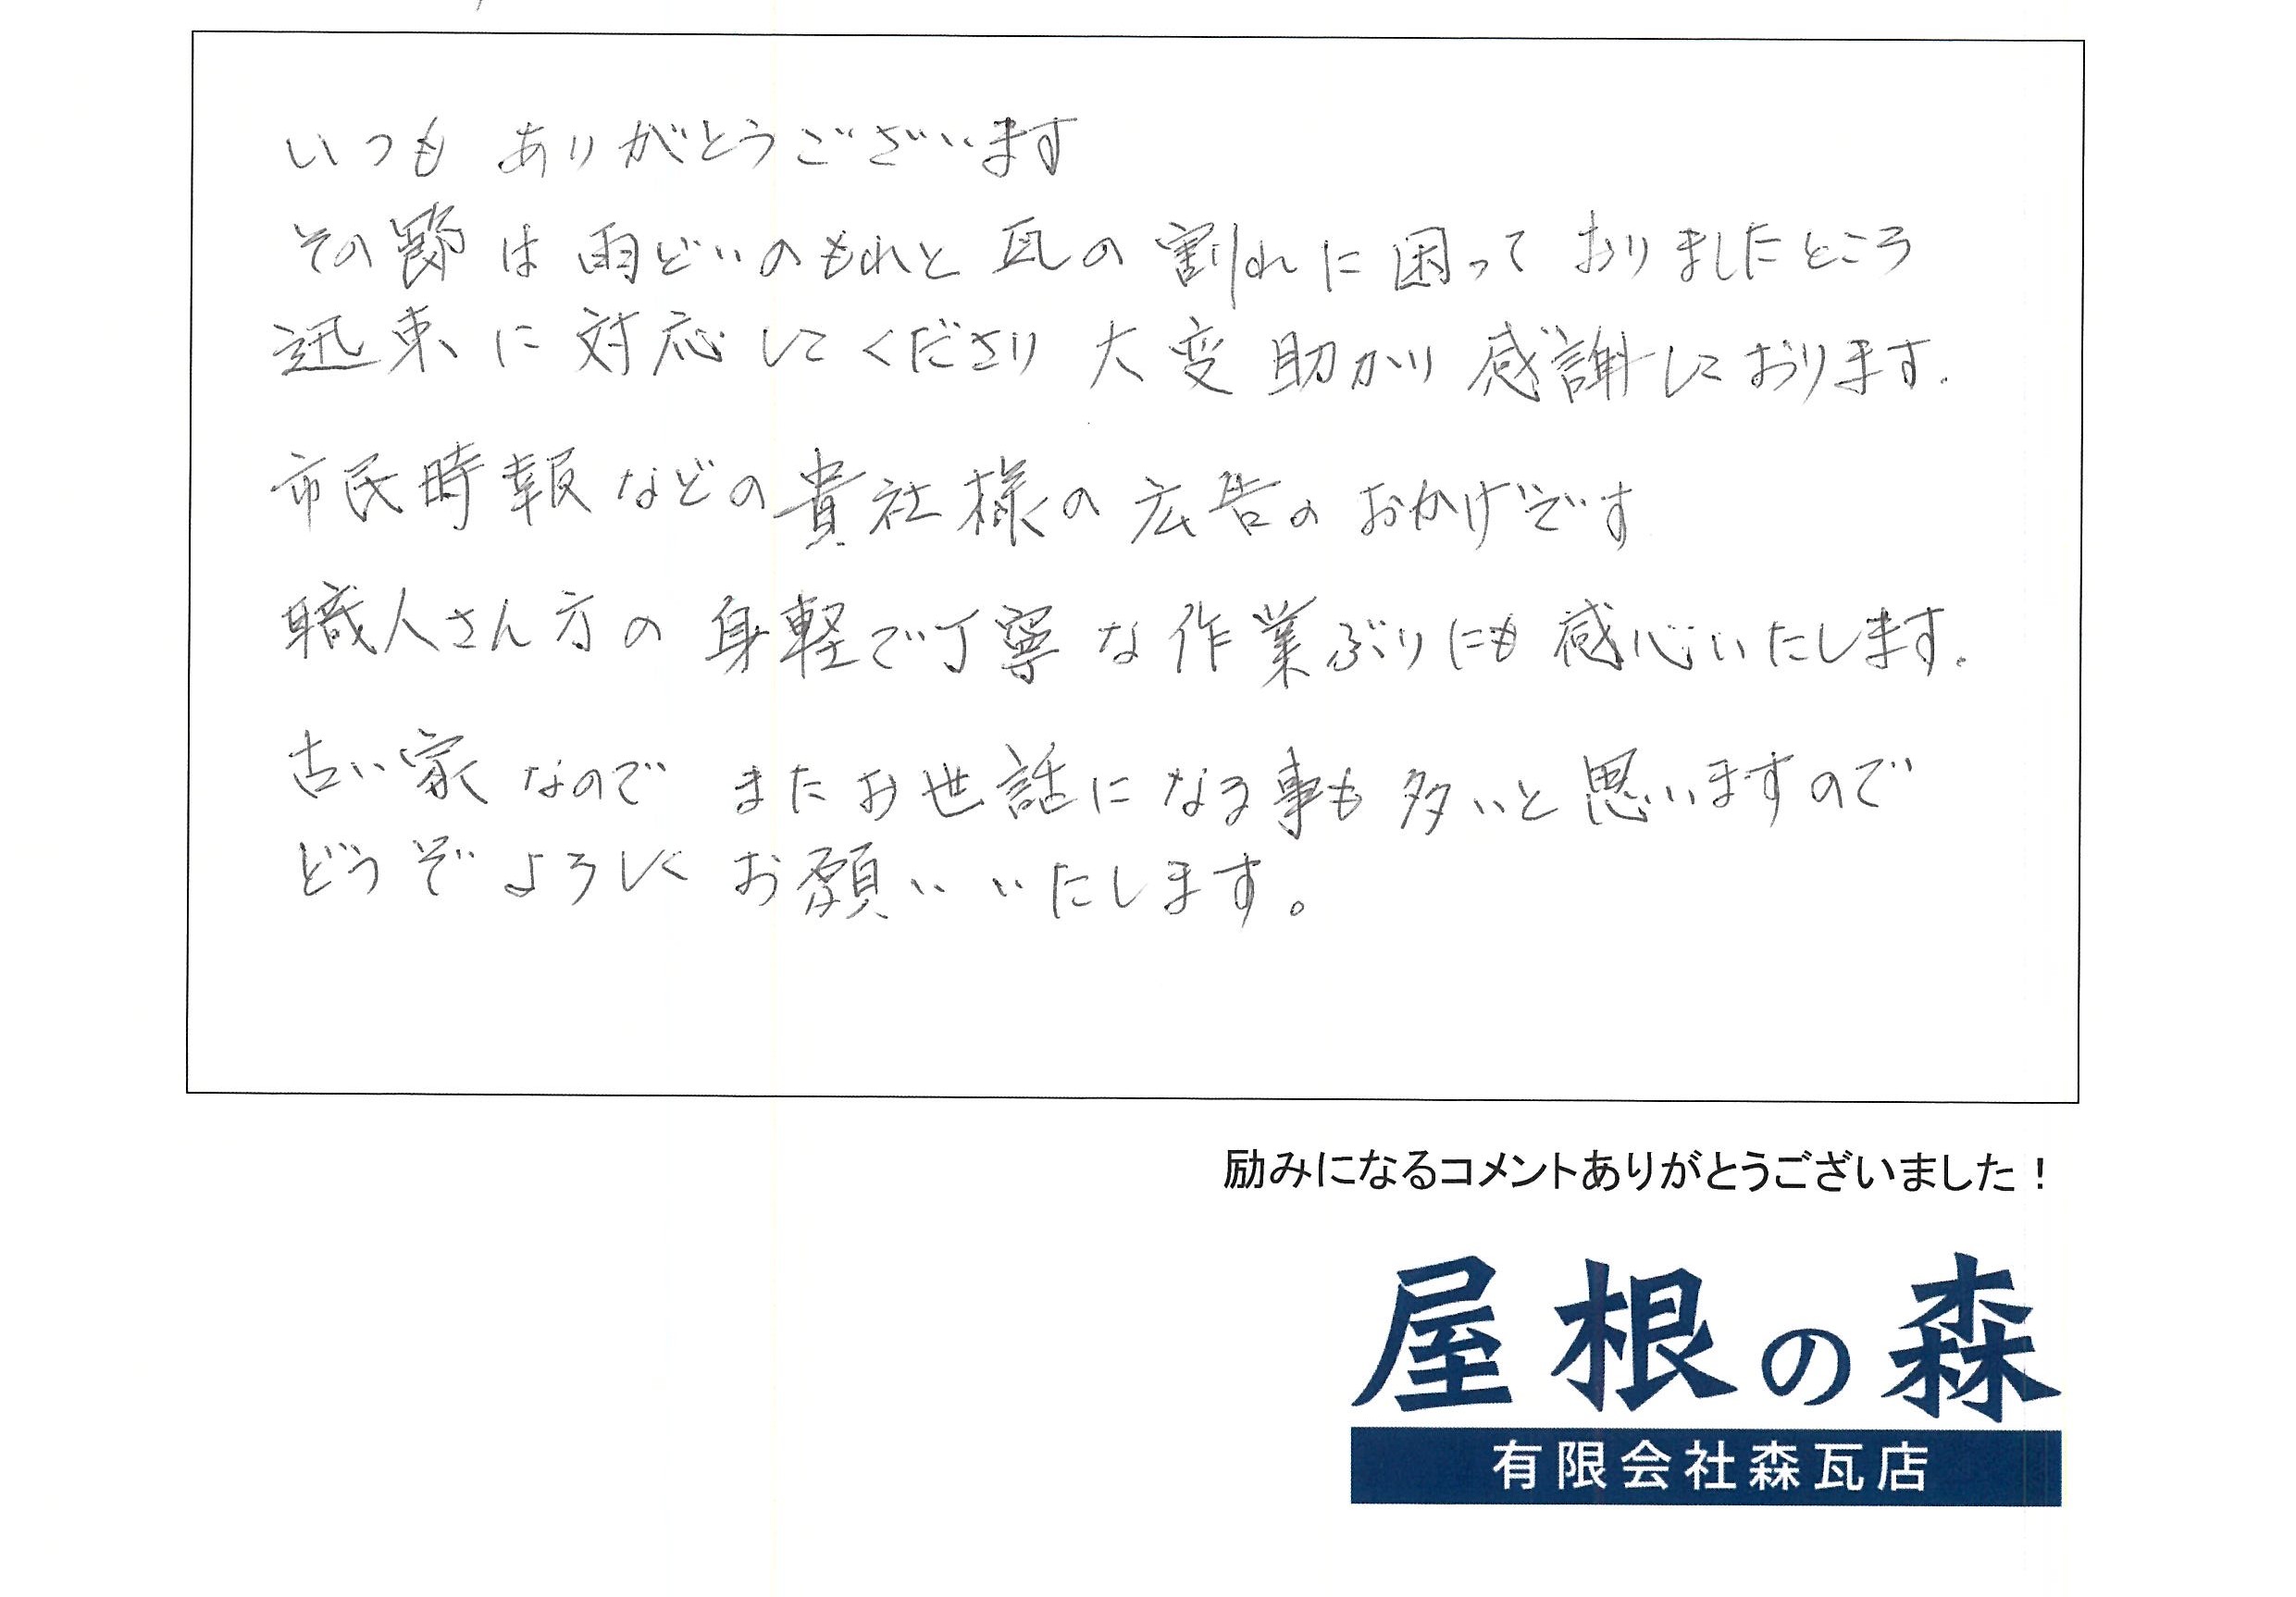 いつも ありがとうございます
その節は雨どいのもれと瓦の割れに困っておりましたところ
迅束に対応してくださり大変助かり感謝しております.
市民時報などの貴社様の広告のおかげです
職人さん方の身軽で丁寧な作業ぶりにも感心いたします.
古い家なので またお世話になる事も多いと思いますので
どうぞよろしくお願いいたします。
励みになるコメントありがとうございました！
屋根の森
有限会社森瓦店